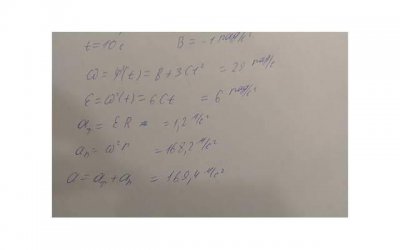 t = 10 c B = -1 рад/с²
ω = φ'(t) = B + 3Ct² = 29 рад/с
ε = ω'(t) = 6Ct = 6 рад/с²
aτ = εR = 1,2 м/с²
an = ω²R = 168,2 м/с²
a = aτ + an = 169,4 м/с²